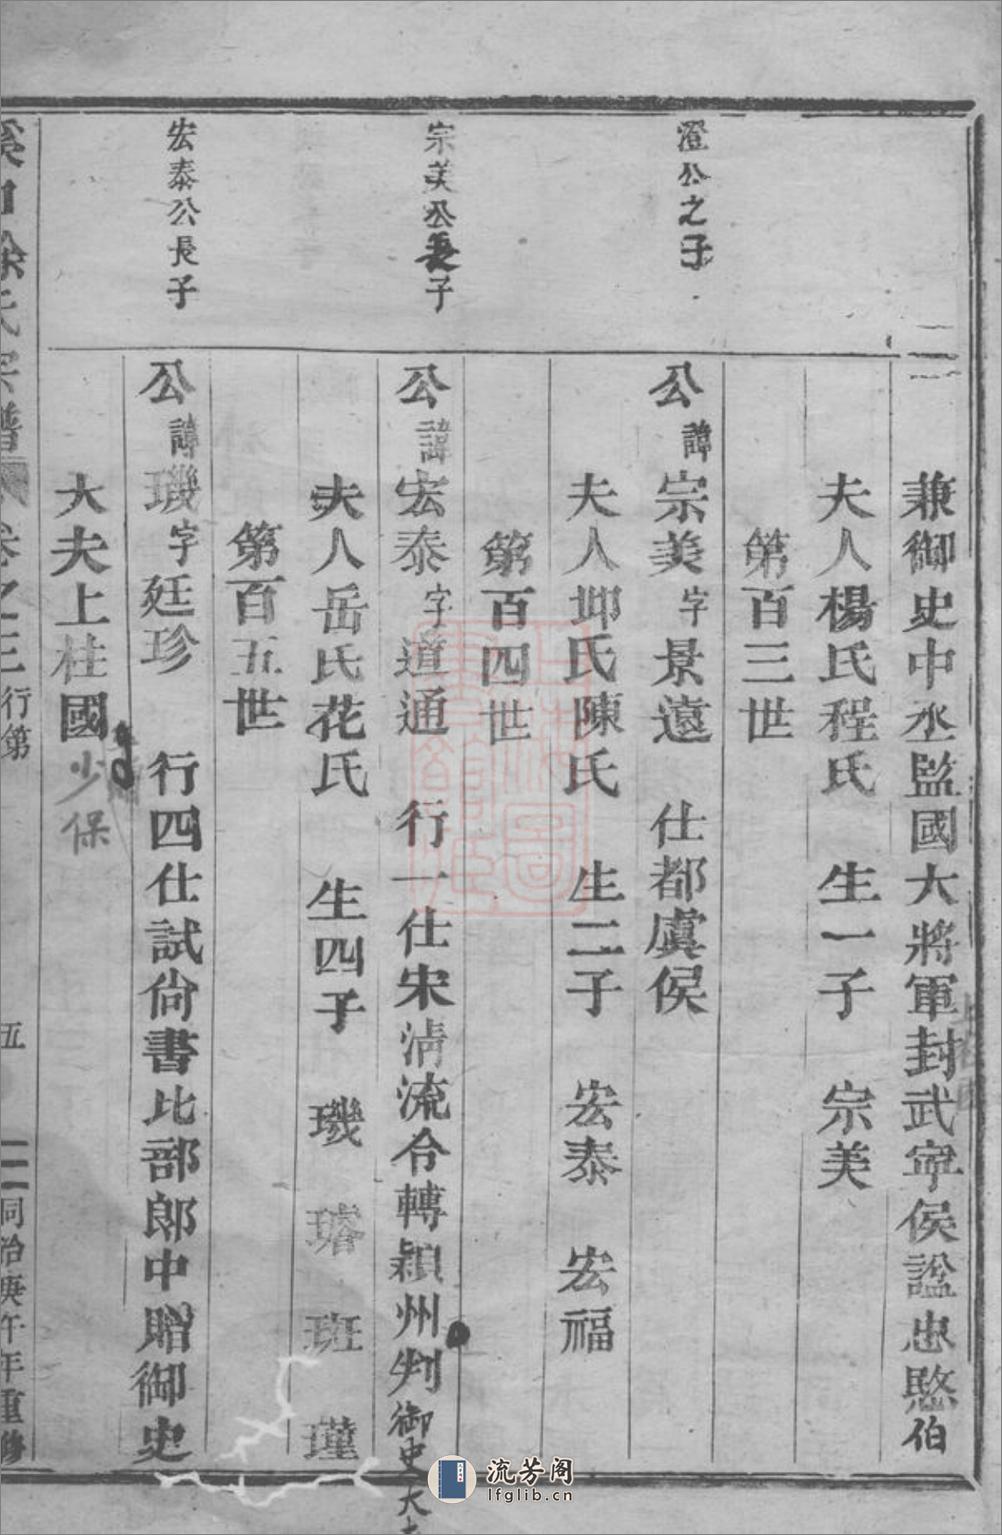 兼御史中丞監國大將軍封武寧侯諡忠愍伯
夫人楊氏程氏 生一子 宗美
第百三世
澄公之子
公諱宗美字景遠 仕都虞侯
夫人邺氏陳氏 生二子 宏泰 宏福
第百四世
宗美公長子
公諱宏泰字道通 行一仕宋清流令轉潁州判御史大夫
夫人岳氏花氏 生四子 璣 璿 班 瑾
第百五世
宏泰公長子
公諱璣字廷珍 行四仕試尙書比部郎中贈御史
大夫上桂國少保
溪口徐氏宗譜 卷之三 行第 五 同治庚午年重修
流芳阁
lfglib.cn